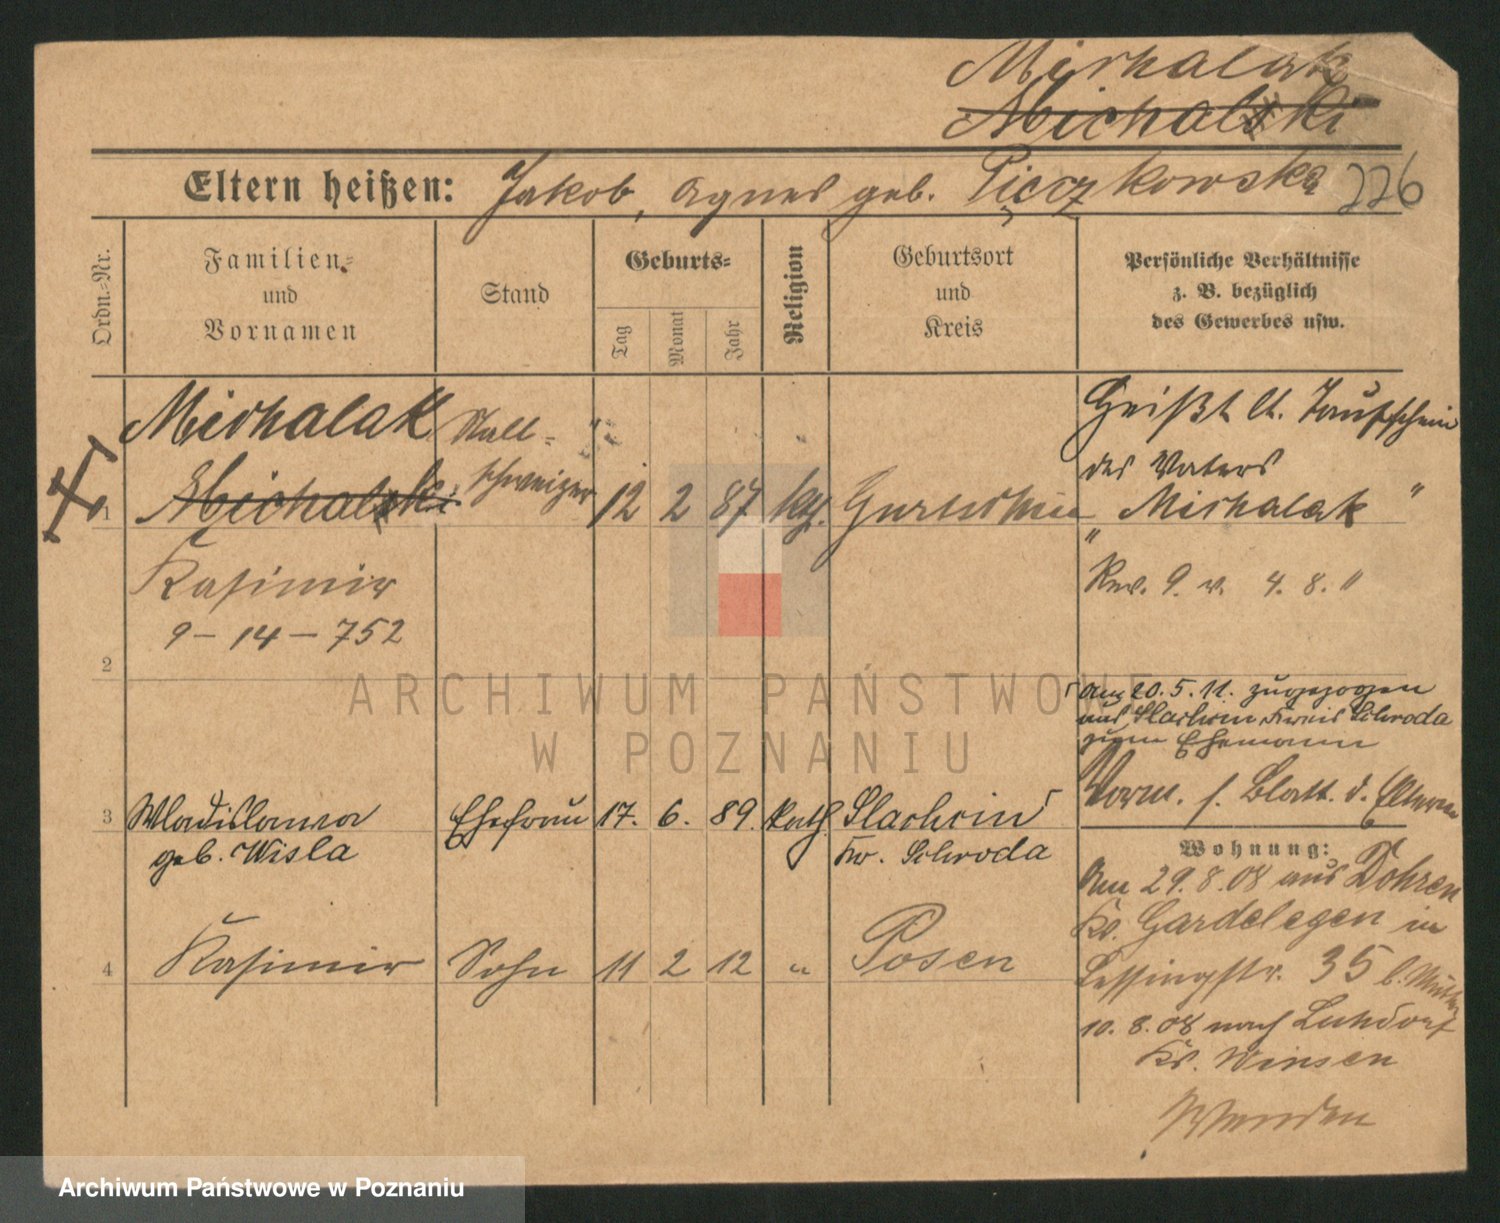 Michalak
Michalski
Eltern heißen: Jakob, Agnes geb. Pięczkowska 226
Ordn.-Nr.
Familien-
und
Vornamen
Stand
Geburts-
Tag
Monat
Jahr
Religion
Geburtsort
und
Kreis
Persönliche Verhältnisse
z. B. bezüglich
des Gewerbes usw.
Michalak Stall-
schweizer
1 Michalski 12 2 87 kth.
Kasimir
9-14-752
Heißt lt. Taufschein
des Vaters
" Michalak "
Rev. 9. v. 4. 8. "
2
Am 20.5.11. zugezogen
aus Slachcin Kreis Schroda
zum Ehemann
Vorm. s. Blatt. d. Eltern
3 Wladislawa Ehefrau 17. 6. 89. kath. Slachcin
geb. Wisla Kr. Schroda
4 Kasimir Sohn 11 2 12 " Posen
Wohnung:
Am 29.8.08 aus Dohren
Kr. Gardelegen in
Lessingstr. 35 b. Mutter
10.8.08 nach Luhdorf
Kr. Winsen
ARCHIWUM PAŃSTWOWE
W POZNANIU
Archiwum Państwowe w Poznaniu